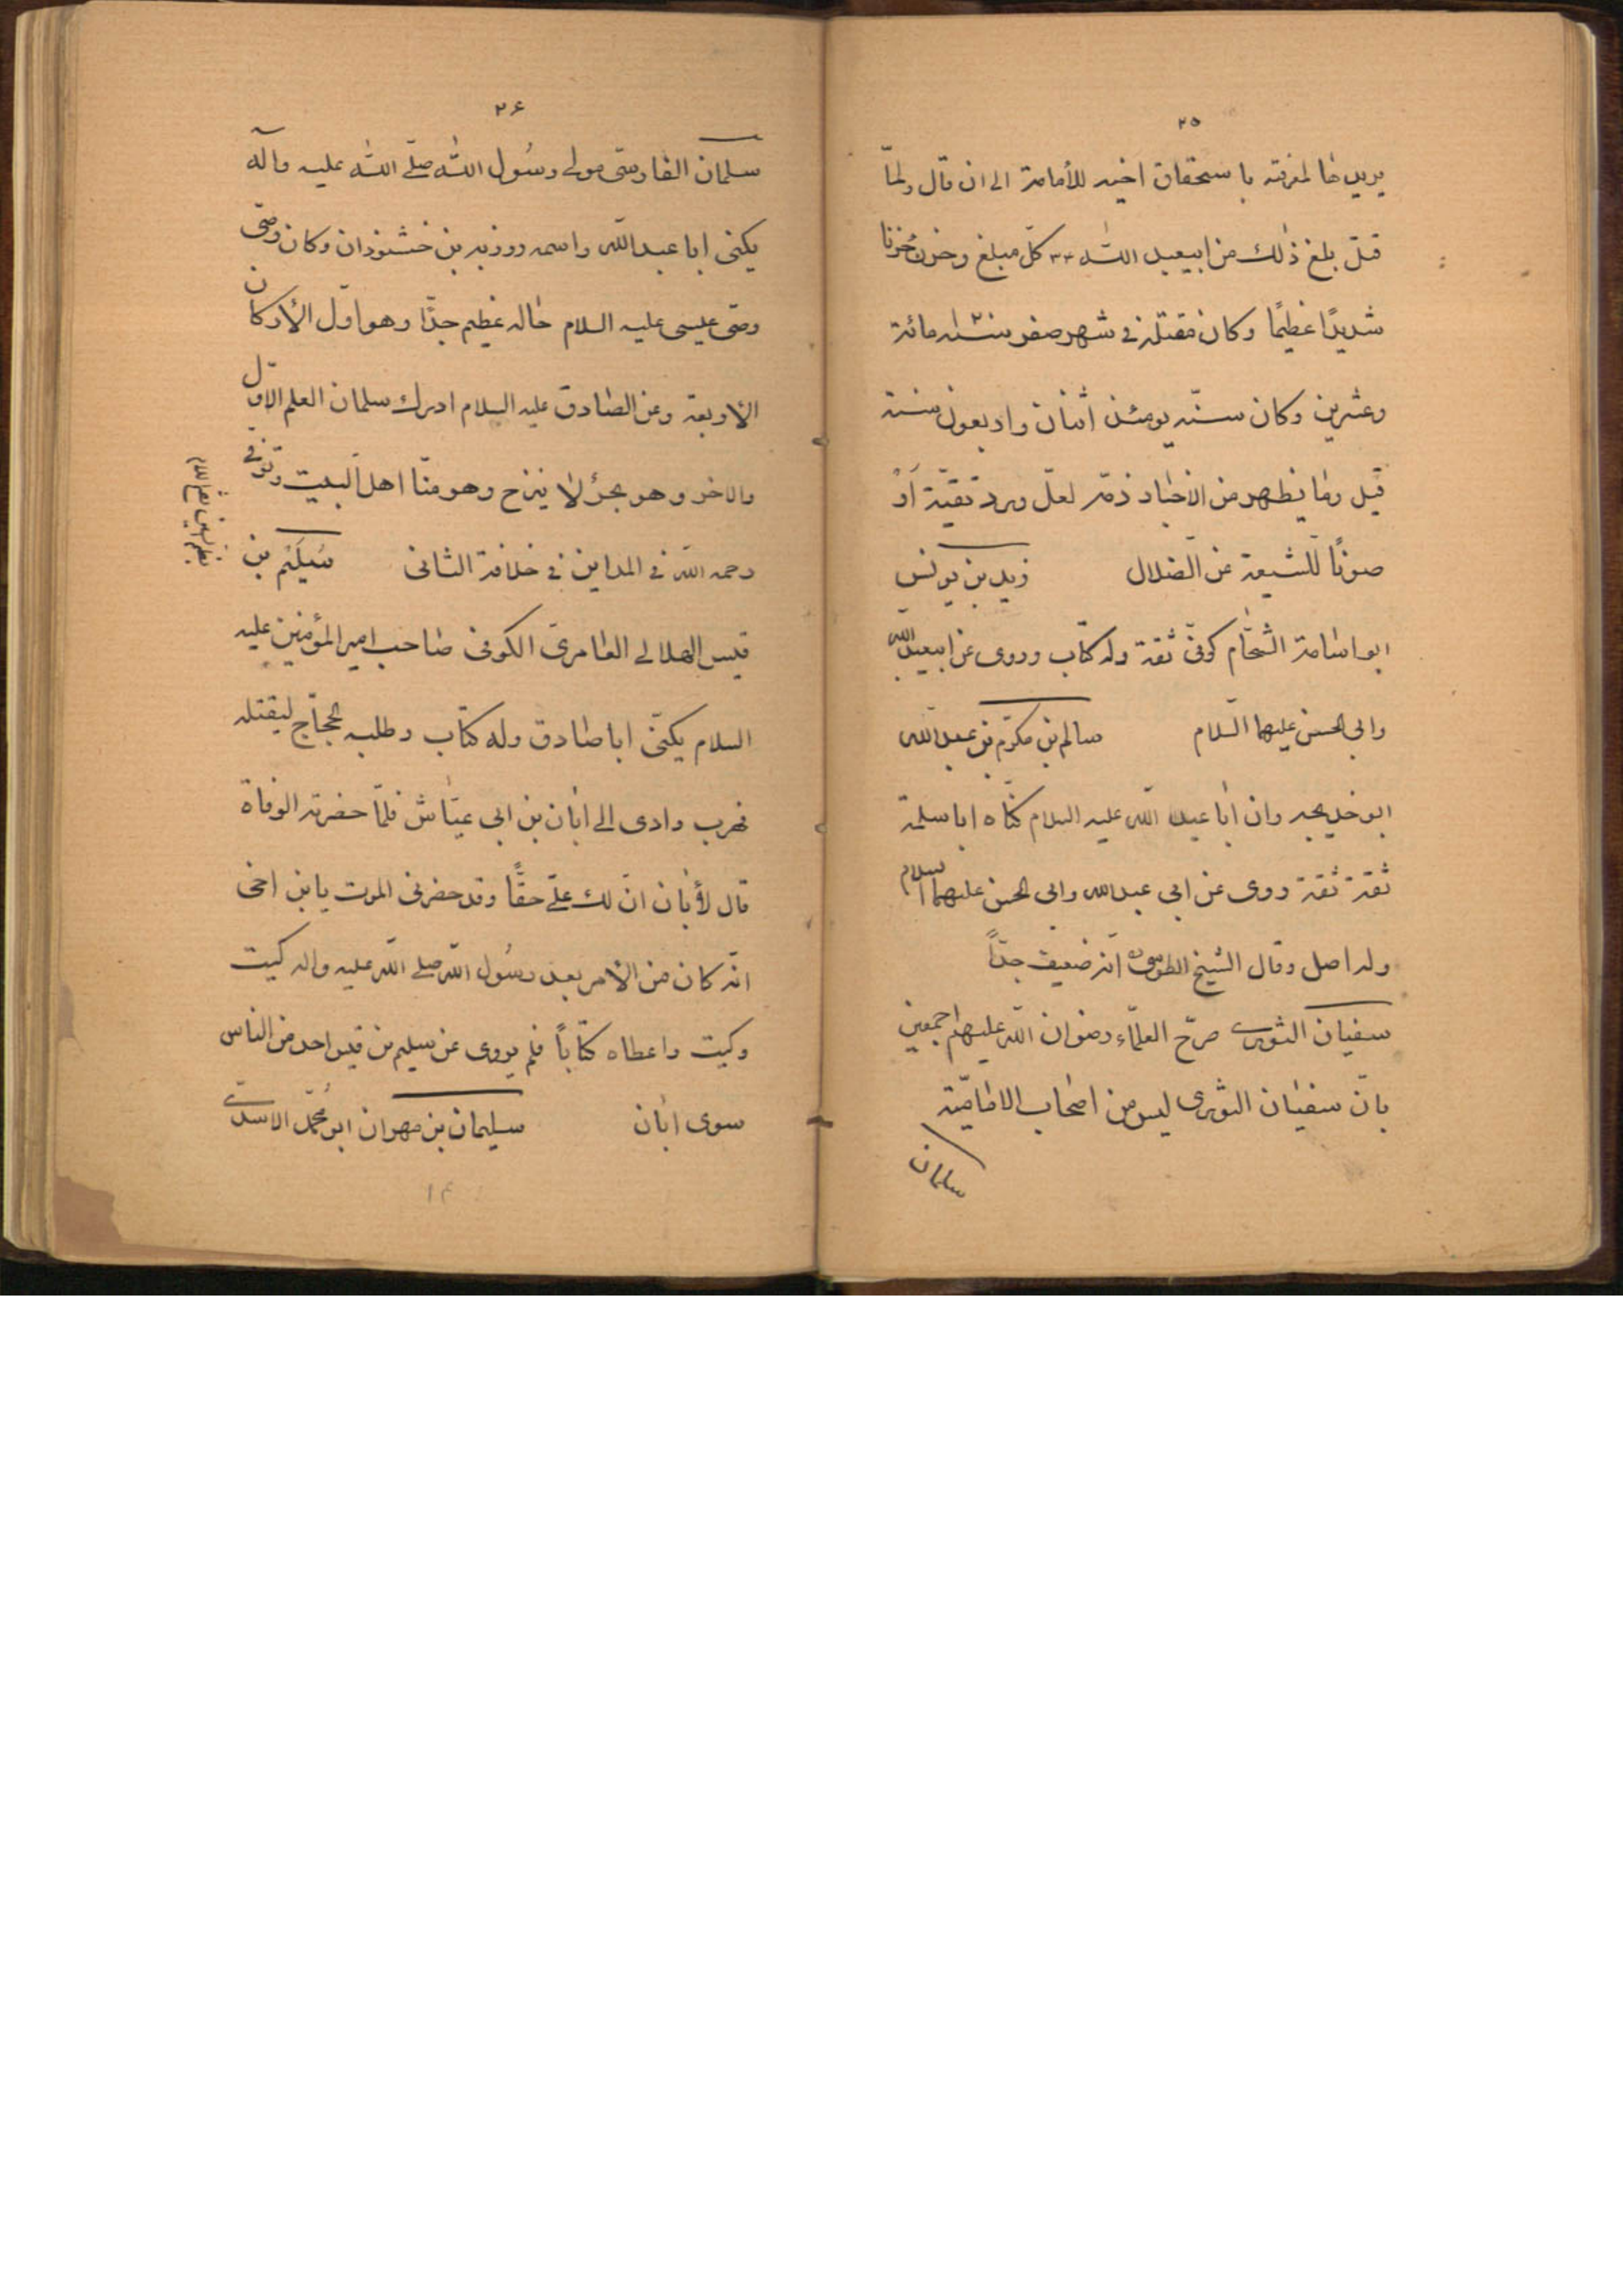 ٢٥
يريدها لمعرفته باستحقاق اخيه للأمامة الى ان قال ولمّا
قتل بلغ ذٰلك من ابيعبد اللّٰه كلّ مبلغ وحزن حُزنا
شديدًا عظيمًا وكان مقتله فى شهر صفر سنة مائة
وعشرين وكان سنّه يومئذ اثنان واربعون سنة
قيل وما يظهر من الاخبار ذمّه لعلّ ورد تقيّة اَوْ
صونًا للشيعة عن الضلال زيد بن يونس
ابو اسامة الشحّام كوفىّ ثقة وله كتاب وروى عن ابيعبد اللّه
وابى الحسن عليهما السّلام سالم بن مكرّم بن عبد اللّه
ابو خديجه وان ابا عبد اللّه عليه السلام كنّاه ابا سلمة
ثقة ثقة روى عن ابى عبد اللّه وابى الحسن عليهما السلام
وله اصل وقال الشيخ الطوسى انه ضعيف جدّاً
سفيان الثورى صرّح العلمآء رضوان اللّه عليهم اجمعين
بانّ سفيان الثورى ليس من اصحاب الاماميّة
سلمان
٢۶
سلمان الفارسى مولى رسُول اللّٰه صلّى اللّٰه عليه وآله
يكنى ابا عبد اللّه واسمه روزبه بن خشنوذان وكان وصّى
وصّى عيسى عليه السلام حاله عظيم جدّا وهو اوّل الأركان
الأربعة وعن الصادق عليه السلام ادرك سلمان العلم الاوّل
والاخر وهو بحرٌ لا ينزح وهو منّا اهل البيت وتوفى
رحمه اللّه فى المداين فى خلافة الثانى سُيَليَم بن
قيس الهلالى العامرى الكوفى صاحب امير المؤمنين عليه
السلام يكنّى ابا صادق وله كتاب وطلبه الحجّاج ليقتله
فهرب واوى الى ابان بن ابى عيّاش فلمّا حضرته الوفاة
قال لأبان انّ لك علىّ حقًّا وقد حضرنى الموت يابن اخى
انّه كان من الامر بعد رسُول اللّه صلى اللّه عليه واله كيت
وكيت واعطاه كتاباً فلم يروى عن سليم بن قيس احد من الناس
سوى ابان سليمان بن مهران ابو محُمّد الاسدى